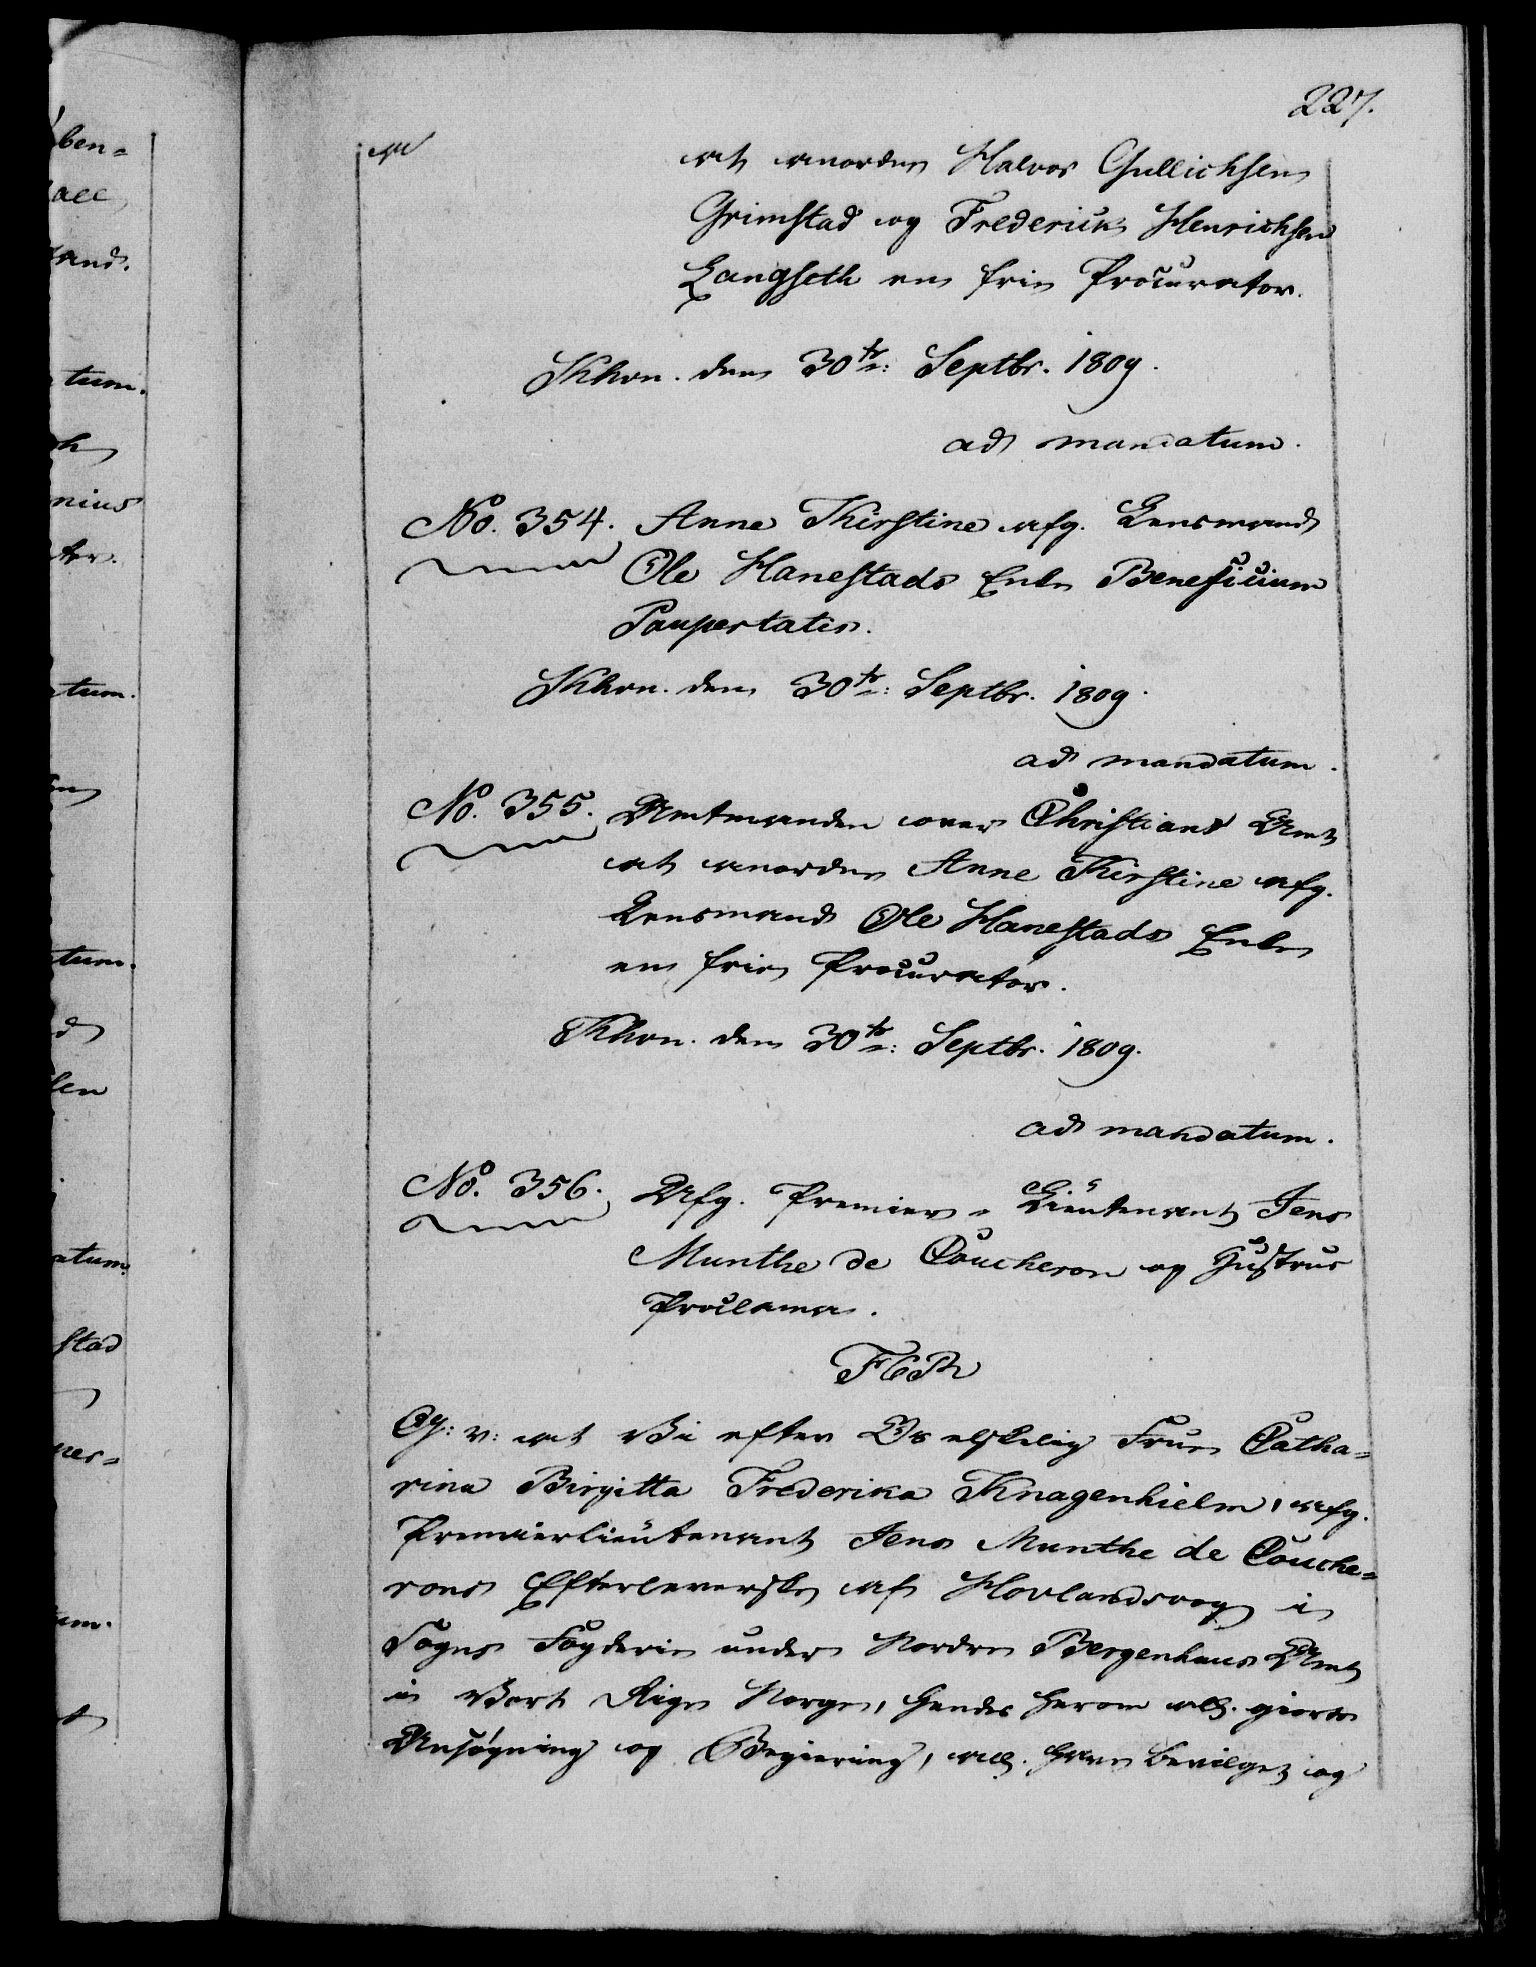 227.
at anordne Halvor Gullichsen
Grimstad og Frederich Henrichsen
Langseth en frie Procurator.
Khvn. den 30te: Septbr. 1809.
ad mandatum.
No. 354. Anne Kirstine afg. Lensmand
Ole Hanestads Enke Beneficium
Paupertatis.
Khvn. den 30te: Septbr. 1809.
ad mandatum.
No. 355. Amtmanden over Christians Amt
at anordne Anne Kirstine afg.
Lensmand Ole Hanestads Enke
en frie Procurator.
Khvn. den 30te: Septbr. 1809.
ad mandatum.
No. 356. Afg. Premier-Lieutenant Jens
Munthe de Coucheron og Hustrues
Proclama.
F6R
G: v: at Vi efter Os elskelig Frue Catha-
rina Birgitta Frederika Knagenhielm, afg.
Premierlieutenant Jens Munthe de Couche-
rons Efterleverske af Hovlandsvog i
Sogns Fogderie under Nordre Bergenhuus Amt
i Vort Rige Norge, hendes herom all. giorte
Ansøgning og Begiering, all. have bevilget og
ben-
all
tand.
tum.
h
nius
ter.
tum.
en
tum.
d
sen
atum.
stad
ner-
um.